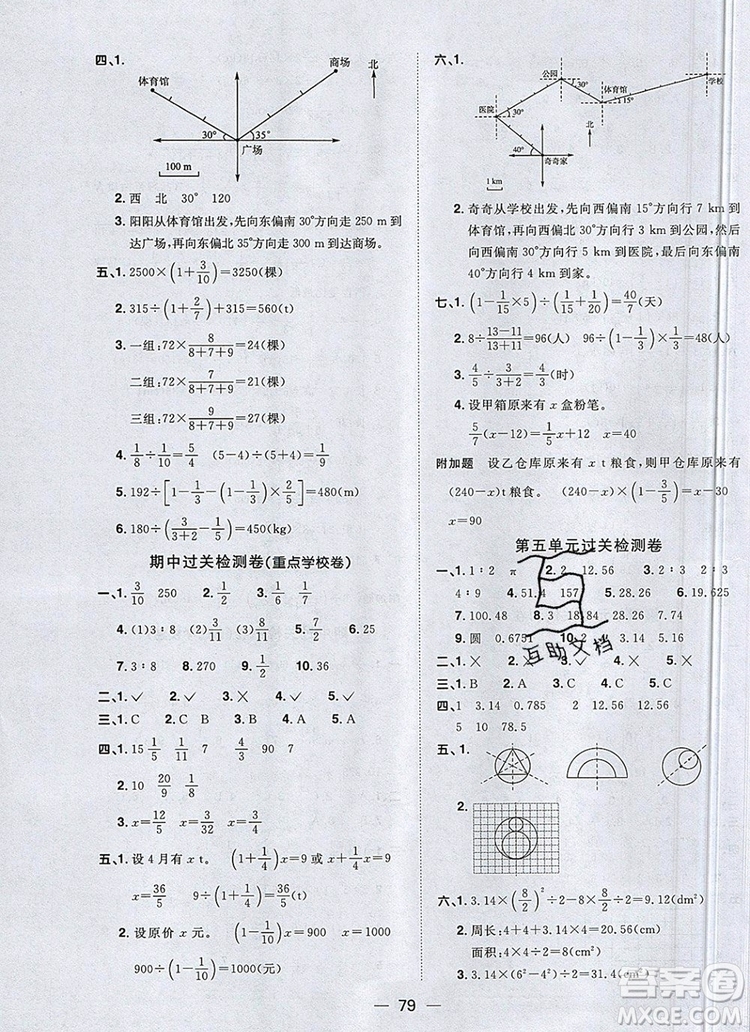 四、1.
体育馆 商场 北
30° 35°
广场
100 m
2. 西 北 30° 120
3. 阳阳从体育馆出发,先向东偏南 30°方向走 250 m 到
达广场,再向东偏北 35°方向走 300 m 到达商场。
五、1. 2500×(1+3/10)=3250(棵)
2. 315÷(1+2/7)+315=560(t)
3. 一组:72×8/(8+7+9)=24(棵)
二组:72×7/(8+7+9)=21(棵)
三组:72×9/(8+7+9)=27(棵)
4. 1/8÷1/10=5/4 (5-4)÷(5+4)=1/9
5. 192÷[1-1/3-(1-1/3)×2/5]=480(m)
6. 180÷(3/(3+2)-1/5)=450(kg)
期中过关检测卷(重点学校卷)
一、1. 3/10 250 2. 1/2 3. 1/6 1/7
4. (1)3∶8 (2)3/11 (3)8/11 5. 6 6. 25
7. 3∶8 8. 270 9. 1/2 10. 36
二、1. ✓ 2. ✓ 3. × 4. ✓ 5. ✓
三、1. C 2. B 3. A 4. C 5. A
四、1. 15 1/5 1/11 7 3/4 90 7
2. 10 20/9 1/8
3. x=12/5 x=3/32 x=6/5
五、1. 设 4 月有 x t。 (1+1/4)x=9 或 x+1/4x=9
x=36/5 9÷(1+1/4)=36/5(t)
2. 设原价 x 元。 (1-1/10)x=900 x=1000
900÷(1-1/10)=1000(元)
六、1.
公园 体育馆 学校
30° 15°
医院 30° 北
40° 奇奇家
1 km
2. 奇奇从学校出发,先向西偏南 15°方向行 7 km 到
体育馆,再向西偏北 30°方向行 3 km 到公园,然后
向西偏南 30°方向行 5 km 到医院,最后向东偏南
40°方向行 4 km 到家。
七、1. (1-1/15×5)÷(1/15+1/20)=40/7(天)
2. 8÷(13-11)/(13+11)=96(人) 96×1/(1+1)=48(人)
3. 4/5÷3/(3+2)=4/3(时)
4. 设甲箱原来有 x 盒粉笔。
5/7(x-12)=1/2x+12 x=40
附加题 设乙仓库原来有 x t 粮食,则甲仓库原来有
(240-x)t 粮食。 (240-x)×1/4=x-30
x=72
第五单元过关检测卷
一、1. 1∶2 π 2. 2 12.56 3. 2∶3 2∶3
4∶9 4. 51.4 157 5. 2 28.26 6. 19.625
7. 100.48 8. 3 18.84 28.26 7.74
9. 圆 0.6751 10. 2
二、1. × 2. ✓ 3. × 4. × 5. ×
三、1. B 2. A 3. C 4. C 5. A
四、1 3.14 0.785 2 12.56 12.56
5 10 78.5
五、1.
2.
六、1. 3.14×(8/2)²÷2-8×8÷2÷2=9.12(dm²)
2. 周长:4+4+3.14×4=20.56(cm)
面积:4×4÷2=8(cm²)
3. 3.14×(6²-4²)÷2=31.4(cm²)
互助文档
答案圈
MXQE.COM
79